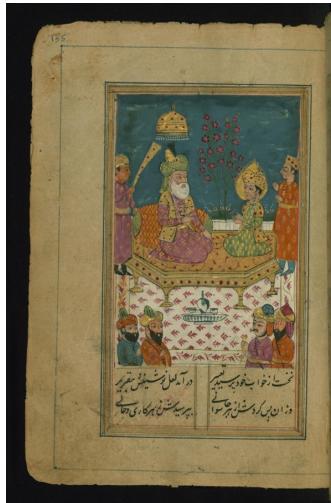 135
نخست از خواب خود پرسید تعبیر در آمد لعل نوشینش بتقریر
وزان پس کردش از هر جا سوالی بپرسیدش ز هر کاری و حالی